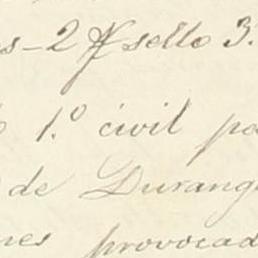 s-2 ff sello 3.
1.º civil pa
de Durang
nes provocad